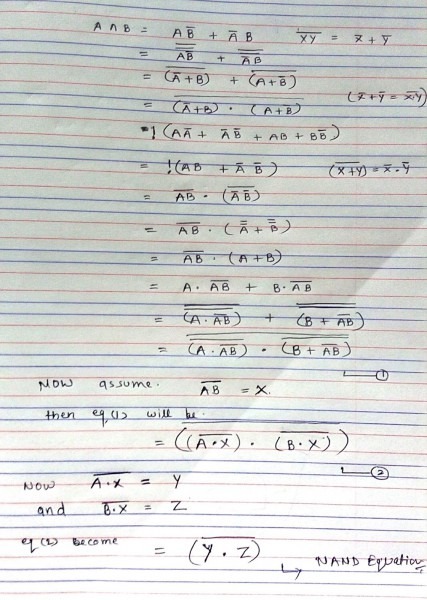 A ∧ B = A B̅ + A̅ B      \overline{XY} = x̅ + y̅
= \overline{\overline{A B̅}} + \overline{\overline{A̅ B}}
= \overline{(A̅ + B)} + \overline{(A + B̅)}
= \overline{(A̅ + B) · (A + B̅)}      (x̅ + y̅ = \overline{x·y})
= ! (A A̅ + A̅ B̅ + AB + B B̅)
= ! (AB + A̅ B̅)      (\overline{x+y}) = x̅ · y̅
= \overline{AB} · (\overline{A̅ B̅})
= \overline{AB} · (A̿ + B̿)
= \overline{AB} · (A + B)
= A · \overline{AB} + B · \overline{AB}
= \overline{\overline{(A · \overline{AB})}} + \overline{\overline{(B + \overline{AB})}}
= \overline{\overline{(A · \overline{AB})} · \overline{(B + \overline{AB})}}
①
Now assume. \overline{AB} = X.
then eq.(1) will be.
= \overline{(\overline{(A · X)} · \overline{(B · X)})}
②
Now \overline{A · X} = Y
and \overline{B · X} = Z
eq (2) become = \overline{(Y · Z)}
↳ NAND Equation